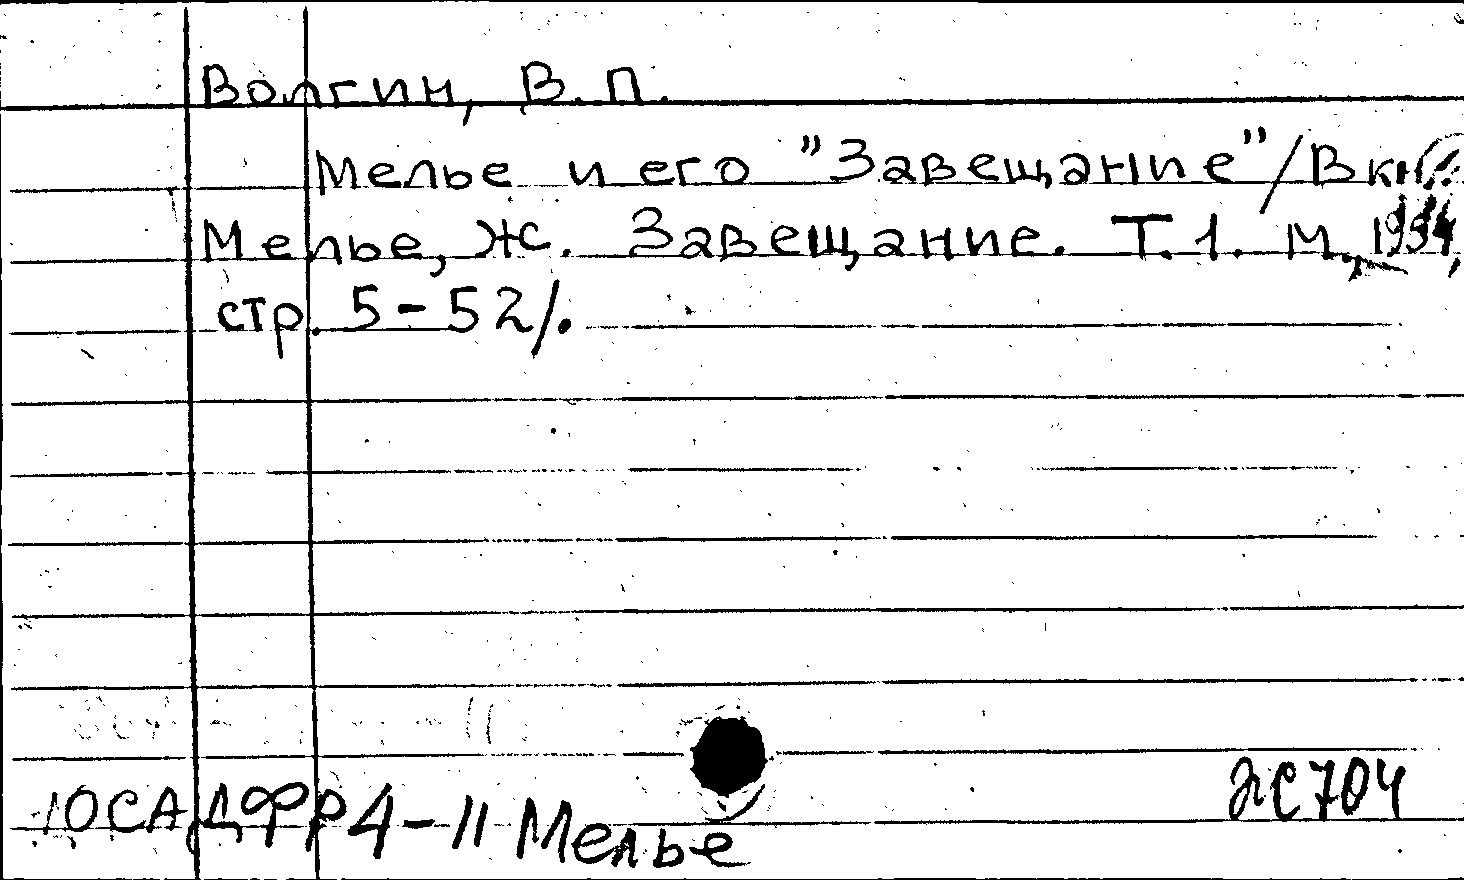 Волгин, В. П.
Мелье и его "Завещание" /В кн.:
Мелье, Ж. Завещание. Т. 1. М., 1954,
стр. 5-52/.
2С704
10СА,ДФР4-11 Мелье